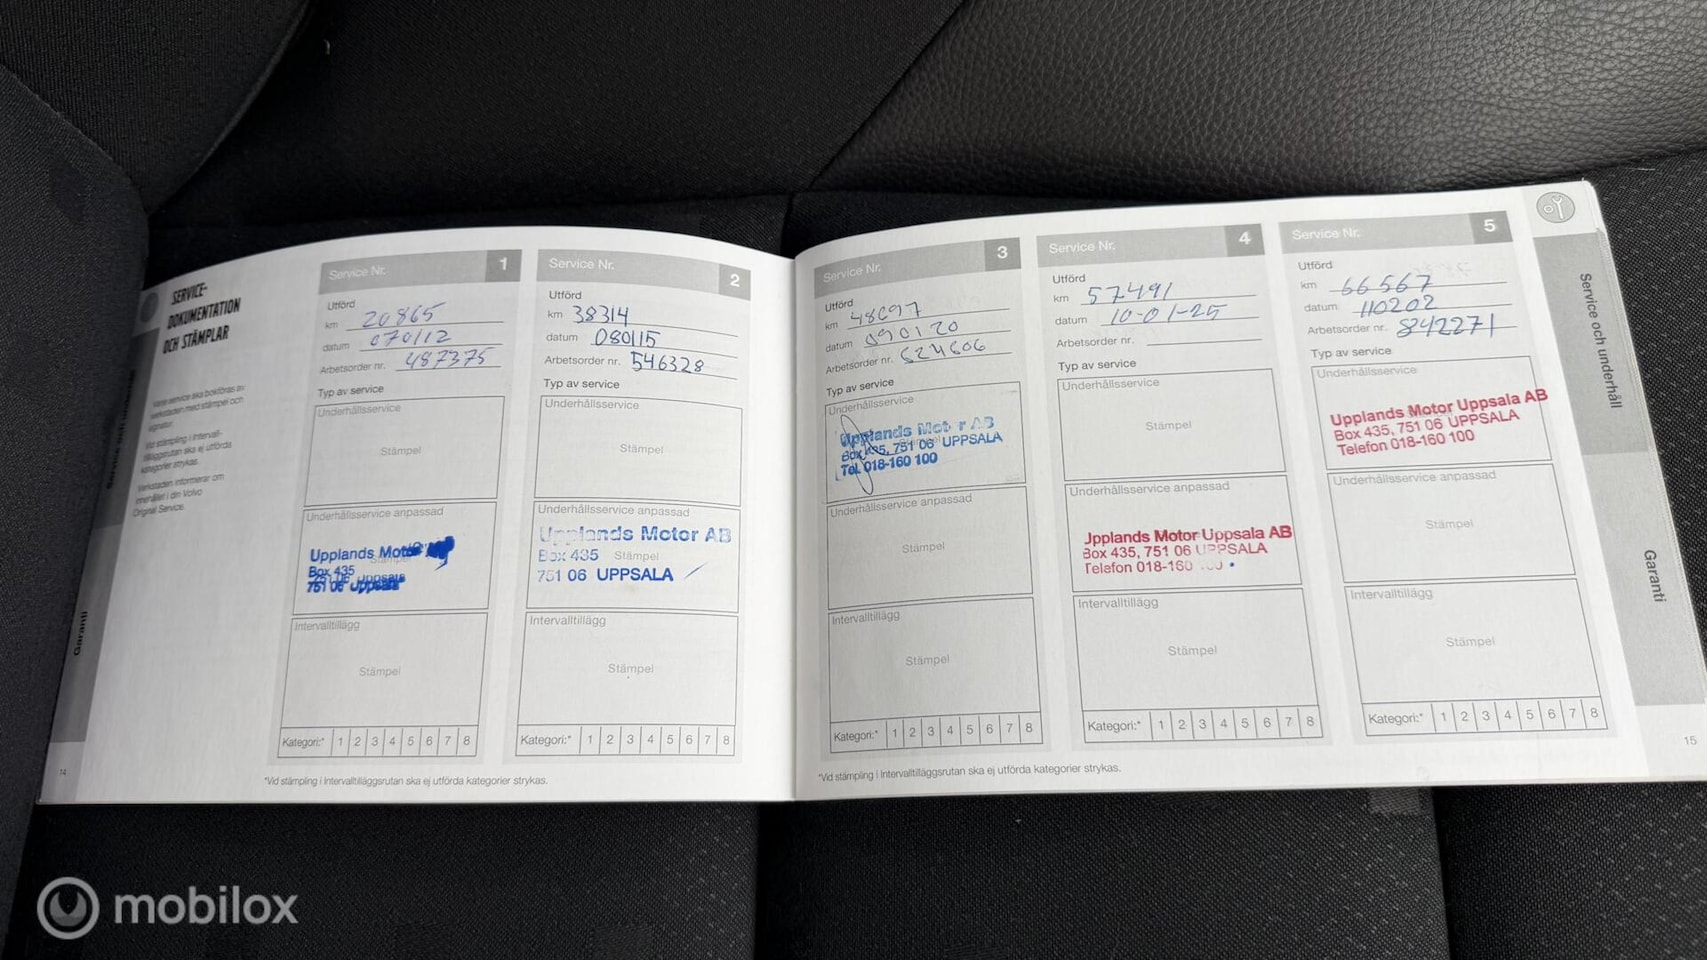 SERVICE-
DOKUMENTATION
OCH STÄMPLAR
Varje service ska bokföras av
verkstaden med stämpel och
signatur.
Vid stämpling i Intervall-
tilläggsrutan ska ej utförda
kategorier strykas.
Verkstaden informerar om
innehållet i din Volvo
Original Service.
Garanti
14
Service Nr. 1
Utförd
km 20865
datum 070112
Arbetsorder nr. 487375
Typ av service
Underhållsservice
Stämpel
Underhållsservice anpassad
Upplands Motor
Stämpel
Box 435
751 06 Uppsala
Intervalltillägg
Stämpel
Kategori:* 1 2 3 4 5 6 7 8
Service Nr. 2
Utförd
km 38314
datum 080115
Arbetsorder nr. 546328
Typ av service
Underhållsservice
Stämpel
Underhållsservice anpassad
Upplands Motor AB
Box 435 Stämpel
751 06 UPPSALA
Intervalltillägg
Stämpel
Kategori:* 1 2 3 4 5 6 7 8
*Vid stämpling i Intervalltilläggsrutan ska ej utförda kategorier strykas.
Service Nr. 3
Utförd
km 48097
datum 090120
Arbetsorder nr. 624606
Typ av service
Underhållsservice
Upplands Motor AB
Box 435, 751 06 UPPSALA
Tel. 018-160 100
Underhållsservice anpassad
Stämpel
Intervalltillägg
Stämpel
Kategori:* 1 2 3 4 5 6 7 8
Service Nr. 4
Utförd
km 57491
datum 10-01-25
Arbetsorder nr.
Typ av service
Underhållsservice
Stämpel
Underhållsservice anpassad
Upplands Motor Uppsala AB
Box 435, 751 06 UPPSALA
Telefon 018-160 100
Intervalltillägg
Stämpel
Kategori:* 1 2 3 4 5 6 7 8
Service Nr. 5
Utförd
km 66567
datum 110202
Arbetsorder nr. 842271
Typ av service
Underhållsservice
Upplands Motor Uppsala AB
Box 435, 751 06 UPPSALA
Telefon 018-160 100
Underhållsservice anpassad
Stämpel
Intervalltillägg
Stämpel
Kategori:* 1 2 3 4 5 6 7 8
*Vid stämpling i Intervalltilläggsrutan ska ej utförda kategorier strykas.
Service och underhåll
Garanti
15
mobilox